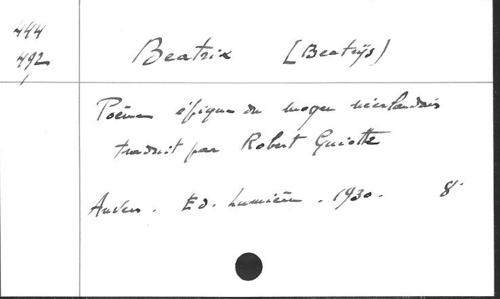 444
492
Beatrix [Beatrijs)
Poème épique du moyen néerlandais
traduit par Robert Guiette
Anvers. Ed. Lumière. 1930. 8°